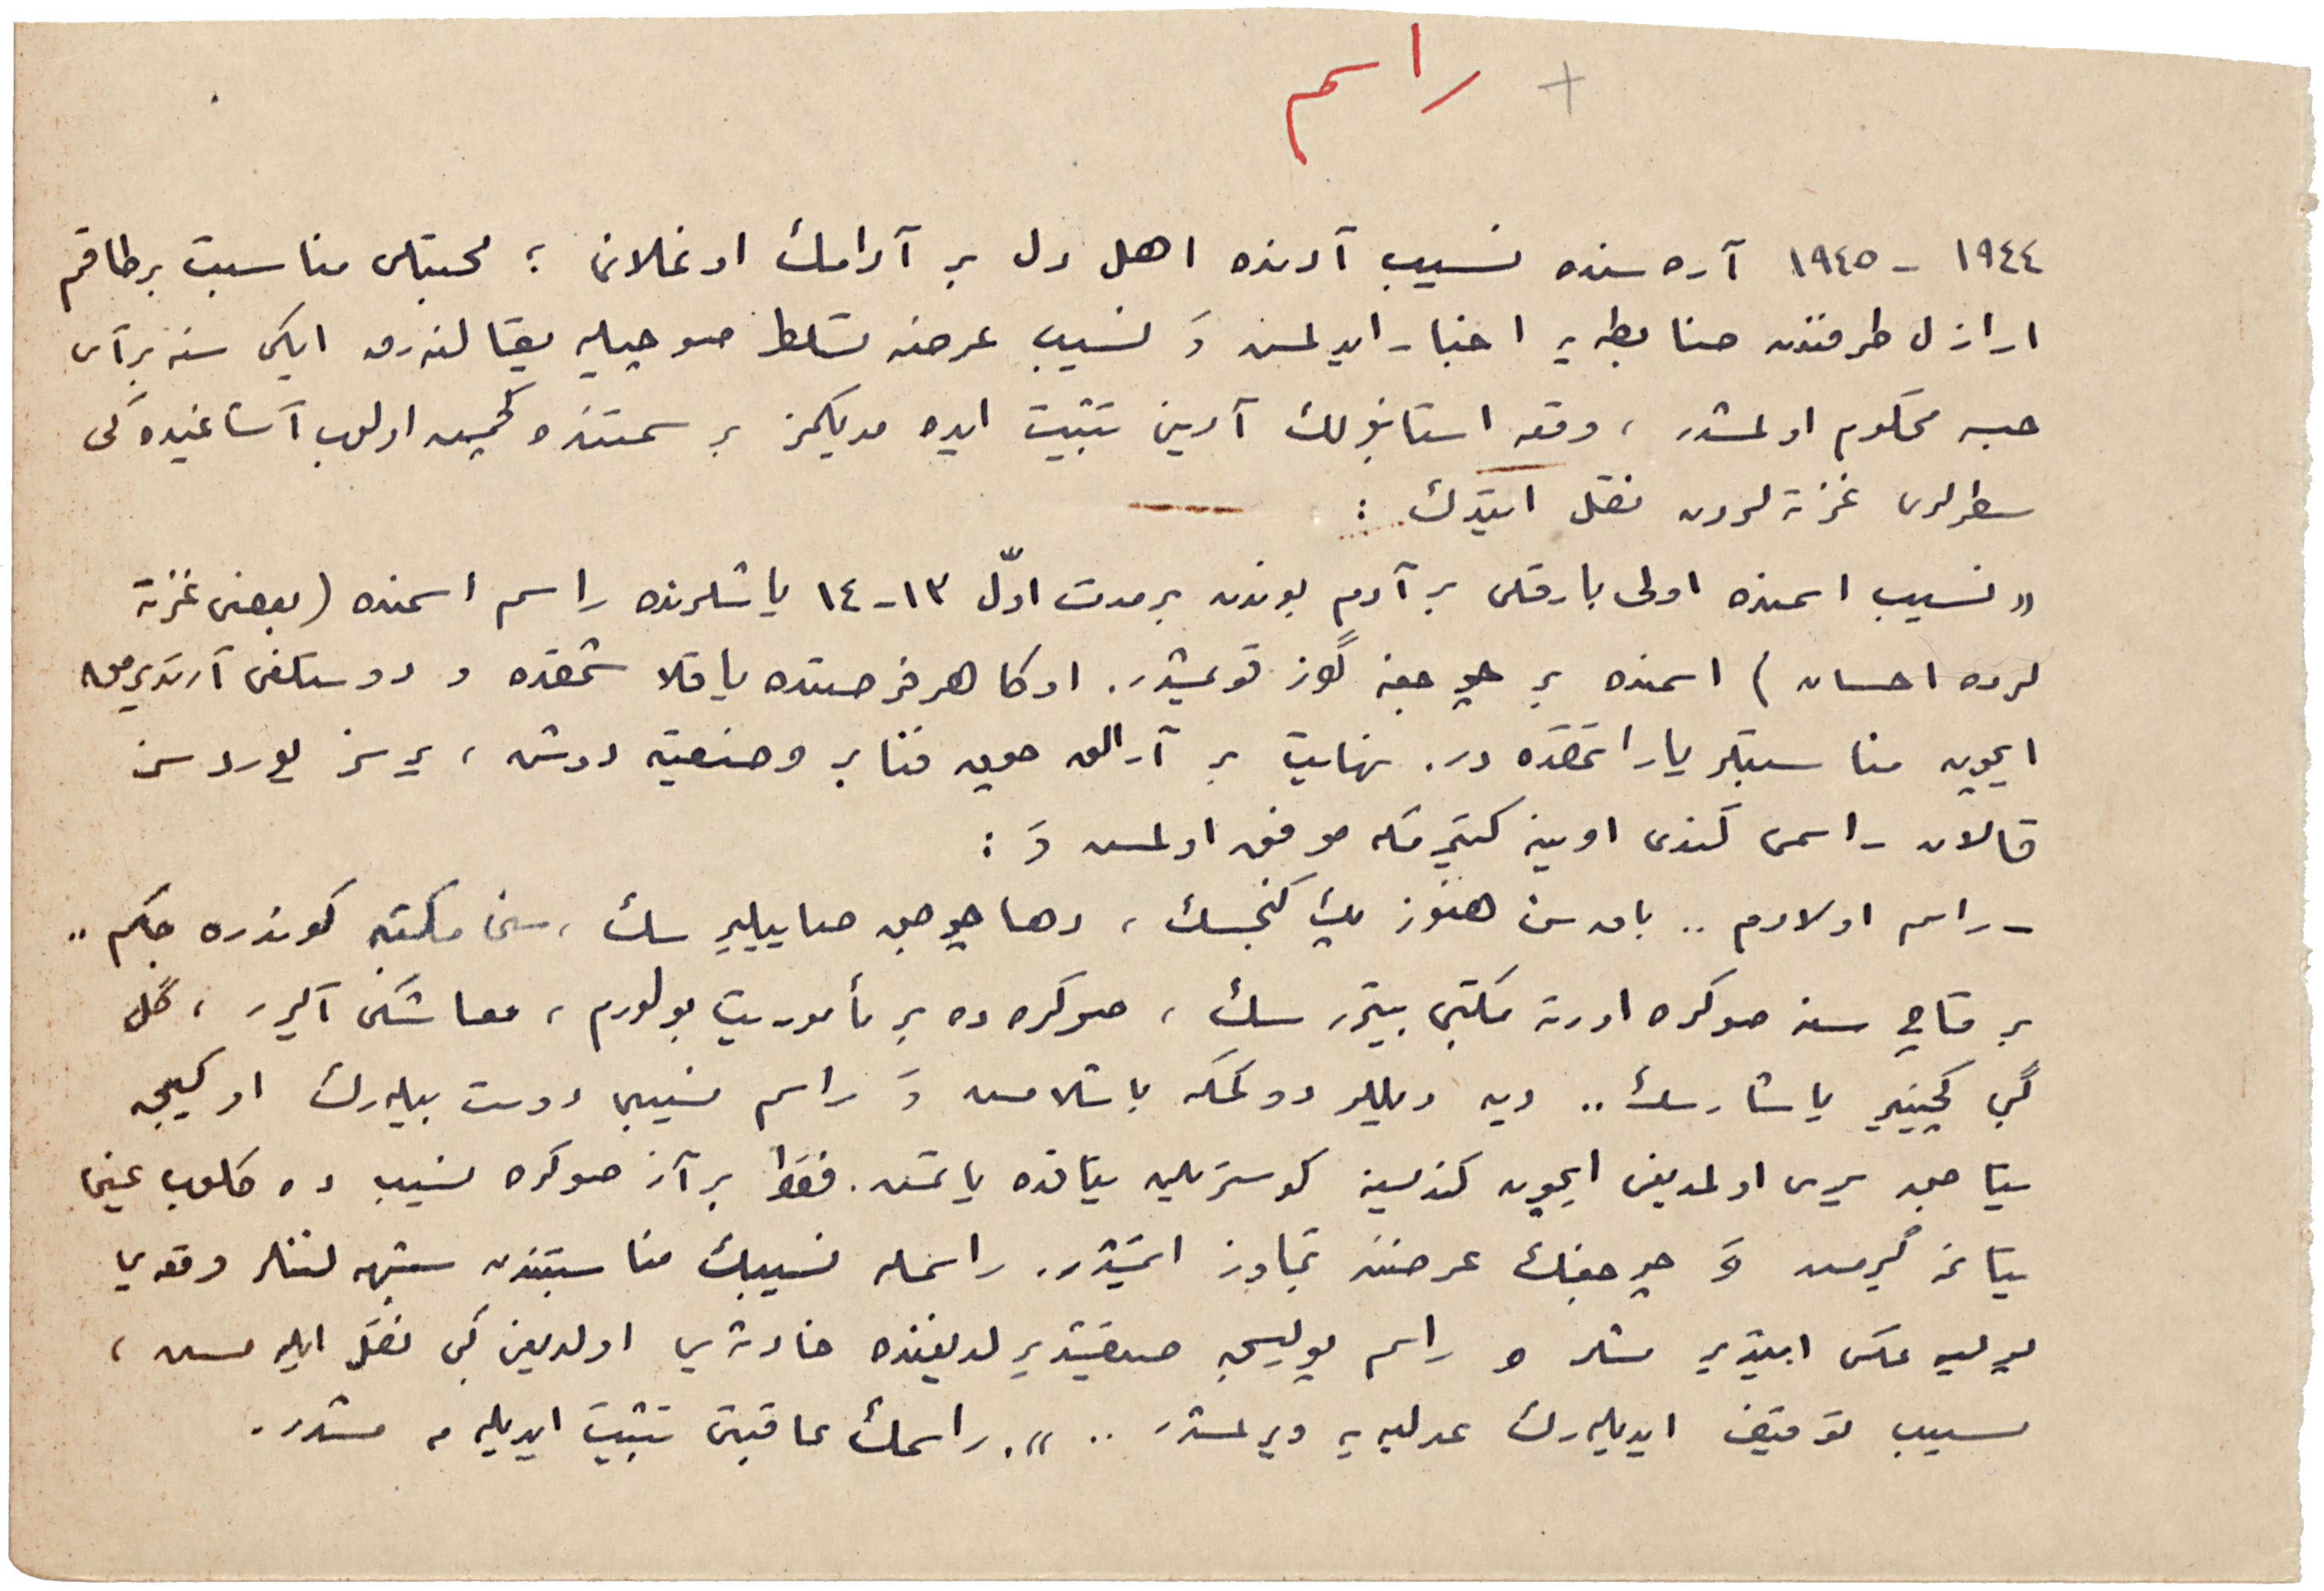 راسم +
١٩٤٤ - ١٩٤٥ آره سنده نسیب آدنده اهل دل بر آدامك اوغلانی ؛ محبتلی مناسبت برطاقم
ارازل طرفندن ضابطه یه اخبار ایدلمش وَ نسیب عرضه تسلط صوچیله یقالنه رق ایکی سنه بر آی
حبسه محکوم اولمشدر ، وقعه استانبولك آدینی تثبیت ایده مدیکمز بر سمتنده کچمش اولوب آشاغیده کی
سطرلری غزته لردن نقل ایتدك :
« نسیب اسمنده اولی بارقلی بر آدم بوندن برمدت اوّل ١٣-١٤ یاشلرنده راسم اسمنده (بعض غزته
لرده احسان) اسمنده بر چوجغه گوز قویمشدر. اوکا هر فرصتده یاقلاشمقده و دوستلغی آرتدیرمق
ایچون مناسبتلر یاراتمقده در. نهایت بر آرالق چوق فنا بر وضعیته دوشن ، یرسز یوردسز
قالان راسمی کندی اوینه کتیرمکه موفق اولمش وَ :
- راسم اولادم .. باق سن هنوز پك کنجسك ، دها چوجق صاییلیرسك ، سنی مکتبه کوندره جکم ..
بر قاچ سنه صوکره اورته مکتبی بیتیررسك ، صوکره ده بر مأموریت بولورم ، معاشکی آلیر ، گل
گبی کچینیر یاشارسك .. دیه دیللر دوکمکه باشلامش وَ راسم نسیبی دوست بیله رك او کیجه
یتاجق یری اولمدیغی ایچون کندیسنه کوستریلن یتاقده یاتمش. فقط بر آز صوکره نسیب ده کلوب عینی
یتاغه گیرمش وَ چوجغك عرضنه تجاوز ایتمشدر. راسمله نسیبك مناسبتندن شبهه لننلر وقعه یی
پولیسه عکس ایتدیرمشلر و راسم پولیسجه صیقیشدیرلدیغنده حادثه یی اولدیغی کبی نقل ایله مش ،
نسیب توقیف ایدیله رك عدلیه یه ویرلمشدر .. ». راسمك عاقبتی تثبیت ایدیله مه مشدر.